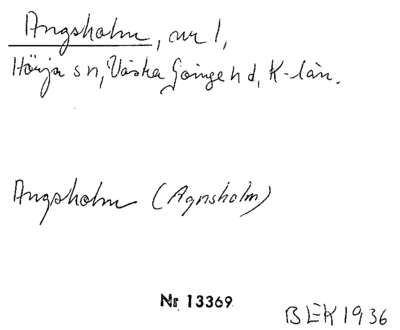 Angsholm, nr 1,
Hörja sn, Västra Göinge hd, K-län.
Angsholm (Agnsholm)
Nr 13369
BEK 1936